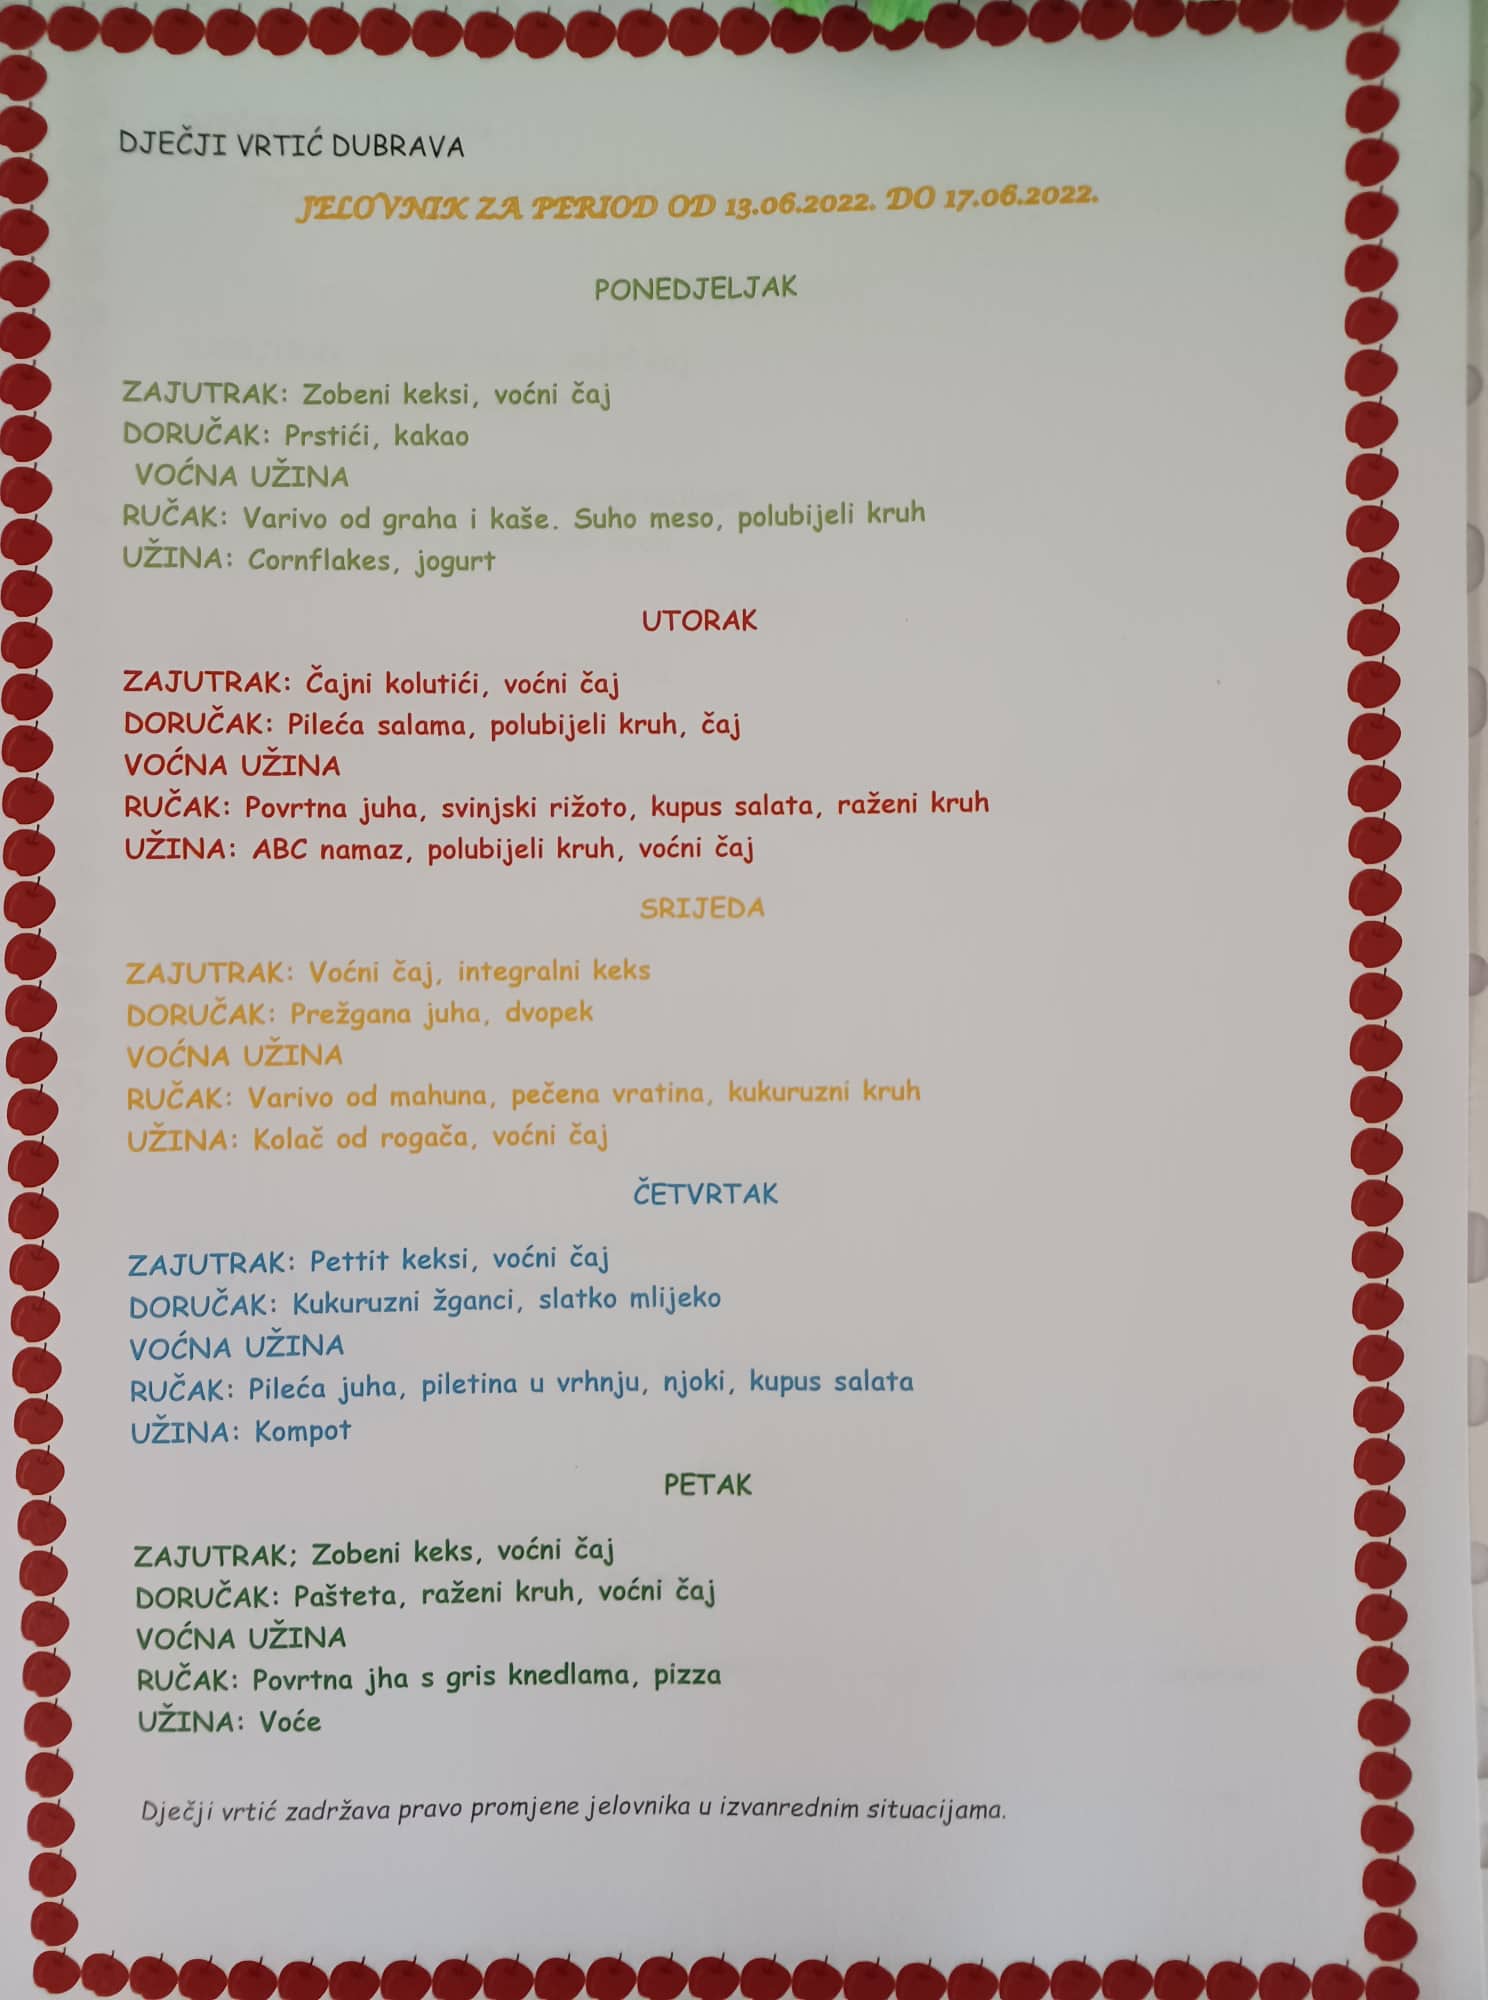 DJEČJI VRTIĆ DUBRAVA
JELOVNIK ZA PERIOD OD 13.06.2022. DO 17.06.2022.
PONEDJELJAK
ZAJUTRAK: Zobeni keksi, voćni čaj
DORUČAK: Prstići, kakao
VOĆNA UŽINA
RUČAK: Varivo od graha i kaše. Suho meso, polubijeli kruh
UŽINA: Cornflakes, jogurt
UTORAK
ZAJUTRAK: Čajni kolutići, voćni čaj
DORUČAK: Pileća salama, polubijeli kruh, čaj
VOĆNA UŽINA
RUČAK: Povrtna juha, svinjski rižoto, kupus salata, raženi kruh
UŽINA: ABC namaz, polubijeli kruh, voćni čaj
SRIJEDA
ZAJUTRAK: Voćni čaj, integralni keks
DORUČAK: Prežgana juha, dvopek
VOĆNA UŽINA
RUČAK: Varivo od mahuna, pečena vratina, kukuruzni kruh
UŽINA: Kolač od rogača, voćni čaj
ČETVRTAK
ZAJUTRAK: Pettit keksi, voćni čaj
DORUČAK: Kukuruzni žganci, slatko mlijeko
VOĆNA UŽINA
RUČAK: Pileća juha, piletina u vrhnju, njoki, kupus salata
UŽINA: Kompot
PETAK
ZAJUTRAK; Zobeni keks, voćni čaj
DORUČAK: Pašteta, raženi kruh, voćni čaj
VOĆNA UŽINA
RUČAK: Povrtna jha s gris knedlama, pizza
UŽINA: Voće
Dječji vrtić zadržava pravo promjene jelovnika u izvanrednim situacijama.